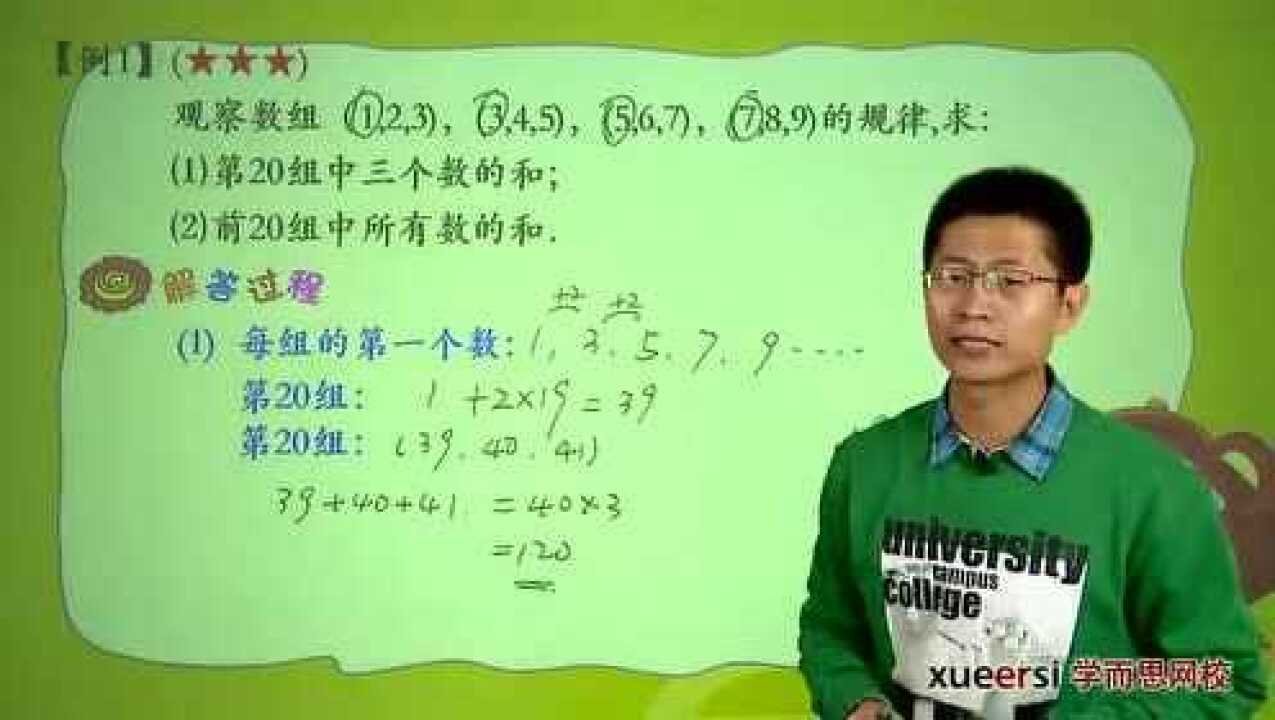 【例1】(★★★)
观察数组 (1,2,3), (3,4,5), (5,6,7), (7,8,9)的规律,求:
(1)第20组中三个数的和;
(2)前20组中所有数的和.
解答过程
+2 +2
(1) 每组的第一个数: 1, 3、5、7、9……
第20组: 1 +2×19=39
第20组: (39、40、41)
39+40+41 =40×3
=120
university
campus
college
xueersi 学而思网校